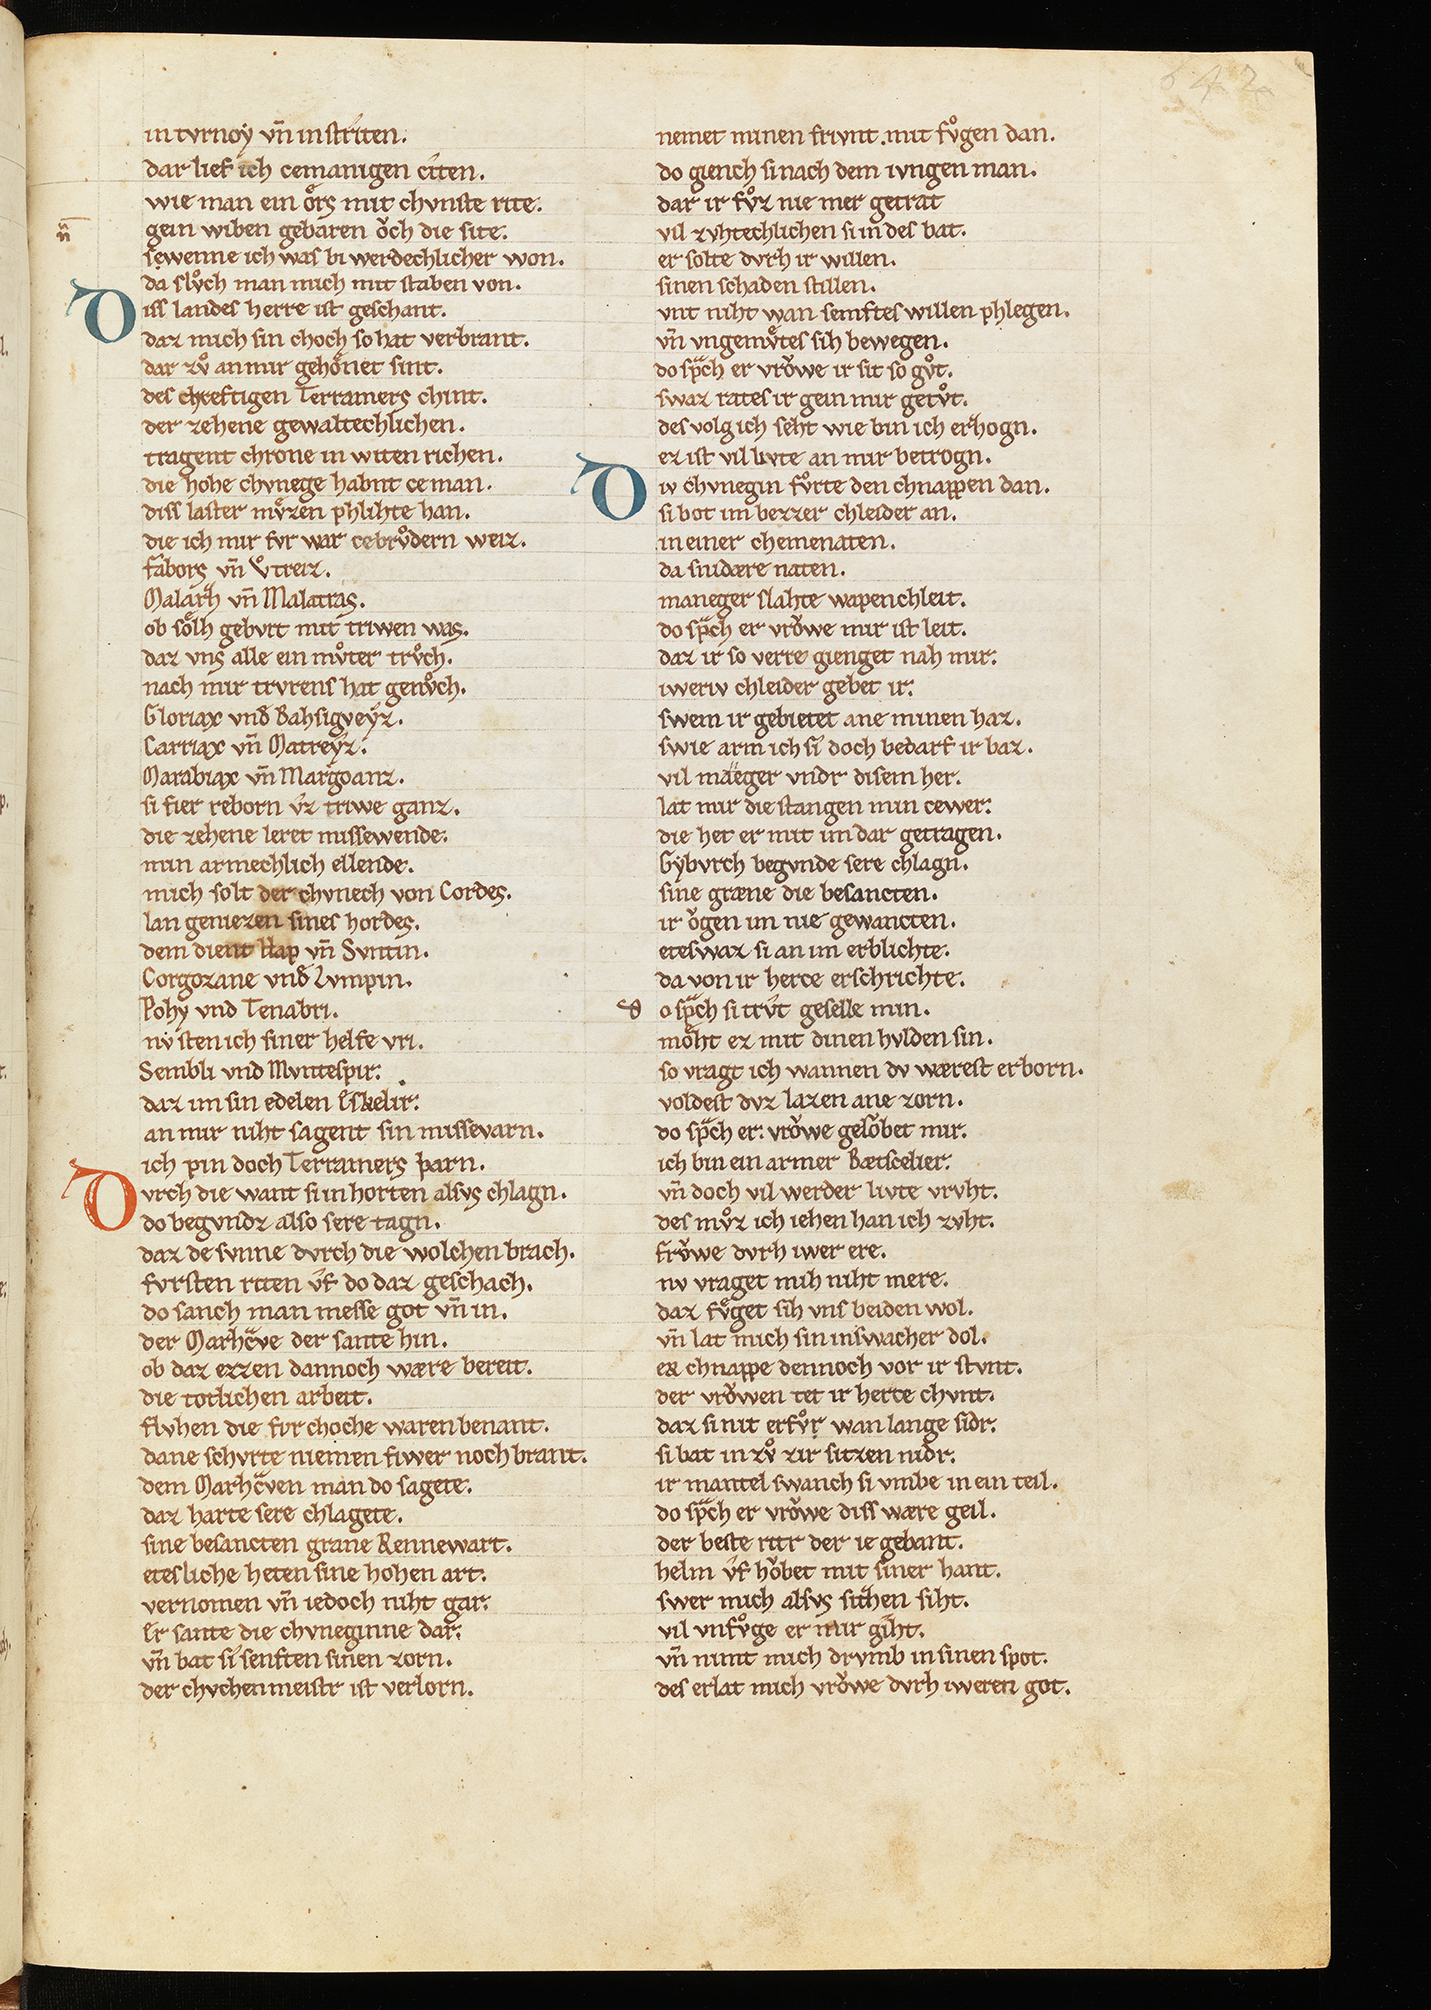 in tvrnoẏ vn̄ in striten.
dar lief ich cemanigen citen.
wie man ein oͤrs mit chvnste rite.
gein wiben gebaren oͮch die site.
sewenne ich was bi werdechlicher won.
da slvͦch man mich mit staben von.
Diss landes herre ist geschant.
daz mich sin choch so hat verbrant.
dar zvͦ an mir gehoͤnet sint.
des chreftigen Terramers chint.
der zehene gewaltechlichen.
tragent chrone in witen richen.
die hohe chvnege habnt ce man.
diss laster mvͤzen phlihte han.
die ich mir fvr war cebrvͦdern weiz.
fabors vn̄ Vtreiz.
Malarͣh vn̄ Malatras.
ob soͤlh gebvrt mit triwen was.
daz vns alle ein mvͦter trvͦch.
nach mir trvrens hat genvͦch.
Gloriax vnd̄ Bahsigveẏz.
Carriax vn̄ Matreẏz.
Marabiax vn̄ Margoanz.
si fier reborn v́z triwe ganz.
die zehene leret missewende.
min armechlich ellende.
mich solt der chvnech von Cordes.
lan geniezen sines hordes.
dem dient Hap vn̄ Svntin.
Corgozane vnd̄ Lvmpin.
Pohẏ vnd Tenabri.
nv́ sten ich siner helfe vri.
Sembli vnd Mvntespir.
daz im sin edelen Eskelir.
an mir niht sagent sin missevarn.
ich pin doch Terramers parn.
Dvrch die want si in horten alsvs chlagn.
do begvndz also sere tagn.
daz de svnne dvrch die wolchen brach.
fvrsten riten v́f do daz geschach.
do sanch man messe got vn̄ in.
der Marhcͣve der sante hin.
ob daz ezzen dannoch wære bereit.
die totlichen arbeit.
flvhen die fvr choche waren benant.
dane schvrte niemen fiwer noch brant.
dem Marhcͣven man do sagete.
daz harte sere chlagete.
sine besancten grane Rennewart.
etesliche heten sine hohen art.
vernomen vn̄ iedoch niht gar.
Er sante die chvneginne dar.
vn̄ bat si senften sinen zorn.
der chvchenmeistr ist verlorn.
nemet minen frivnt.mit fvͦgen dan.
do giench si nach dem ivngen man.
dar ir fvͦz nie mer getrat
vil zvhtechlichen si in des bat.
er solte dvrh ir willen.
sinen schaden stillen.
vnt niht wan semftes willen phlegen.
vn̄ vngemvͤtes sih bewegen.
do spͣch er vroͮwe ir sit so gvͦt.
swaz rates ir gein mir getvͦt.
des volg ich seht wie bin ich erhogn.
ez ist vil livte an mir betrogn.
Div chvnegin fvͦrte den chnappen dan.
si bot im bezzer chleider an.
in einer chemenaten.
da snidære naten.
maneger slahte wapenchleit.
do spͣch er vroͮwe mir ist leit.
daz ir so verre gienget nah mir.
iweriv chleider gebet ir.
swem ir gebietet ane minen haz.
swie arm ich si doch bedarf ir baz.
vil maͤeger vndr disem her.
lat mir die stangen min cewer.
die het er mit im dar getragen.
Gẏbvrch begvnde sere chlagn.
sine græne die besancten.
ir oͮgen im nie gewancten.
eteswaz si an im erblichte.
da von ir herce erschrichte.
do spͣch si trv́t geselle min.
moͤht ez mit dinen hvlden sin.
so vragt ich wannen dv wærest erborn.
voldest dvz lazen ane zorn.
do spͣch er. vroͮwe geloͮbet mir.
ich bin ein armer Bætscelier.
vn̄ doch vil werder livte vrvht.
des mvͦz ich iehen han ich zvht.
froͮwe dvrh iwer ere.
nv vraget mih niht mere.
daz fvͤget sih vns beiden wol.
vn̄ lat mich sin inswacher dol.
chnappe dennoch vor ir stvnt.
der vroͮwen tet ir herce chvnt.
daz si nit erfvͦr wan lange sidr.
si bat in zvͦ zir sitzen nidr.
ir mantel swanch si vmbe in ein teil.
do spͣch er vroͮwe diss wære geil.
der beste ritr der ie gebant.
helm v́f hoͮbet mit siner hant.
swer mich alsvs sithen siht.
vil vnfvͦge er mir giht.
vn̄ nimt mich drvmb in sinen spot.
des erlat mich vroͮwe dvrh iweren got.